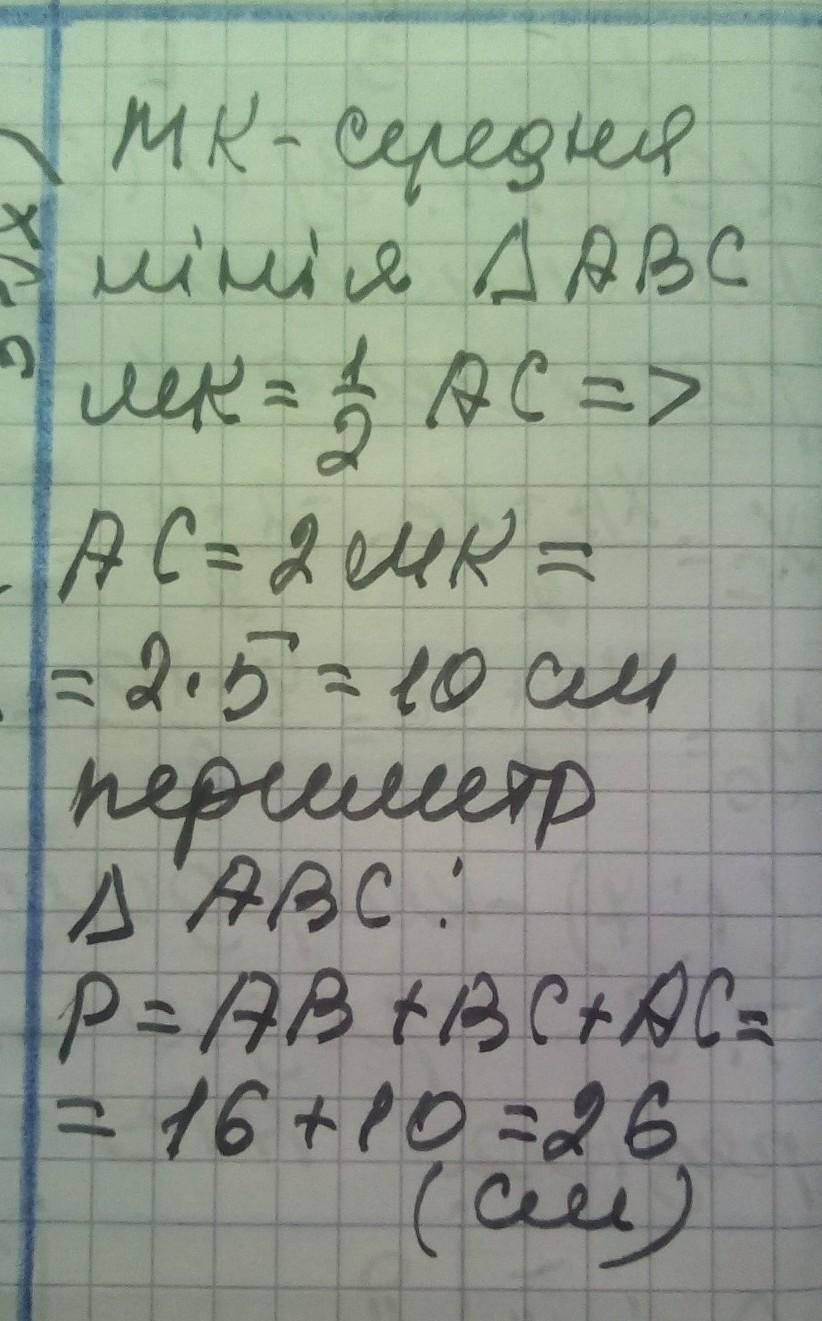 МК - середня
лінія Δ ABC
МК = 1/2 AC =>
AC = 2 МК =
= 2 · 5 = 10 см
периметр
Δ ABC :
P = AB + BC + AC =
= 16 + 10 = 26
(см)